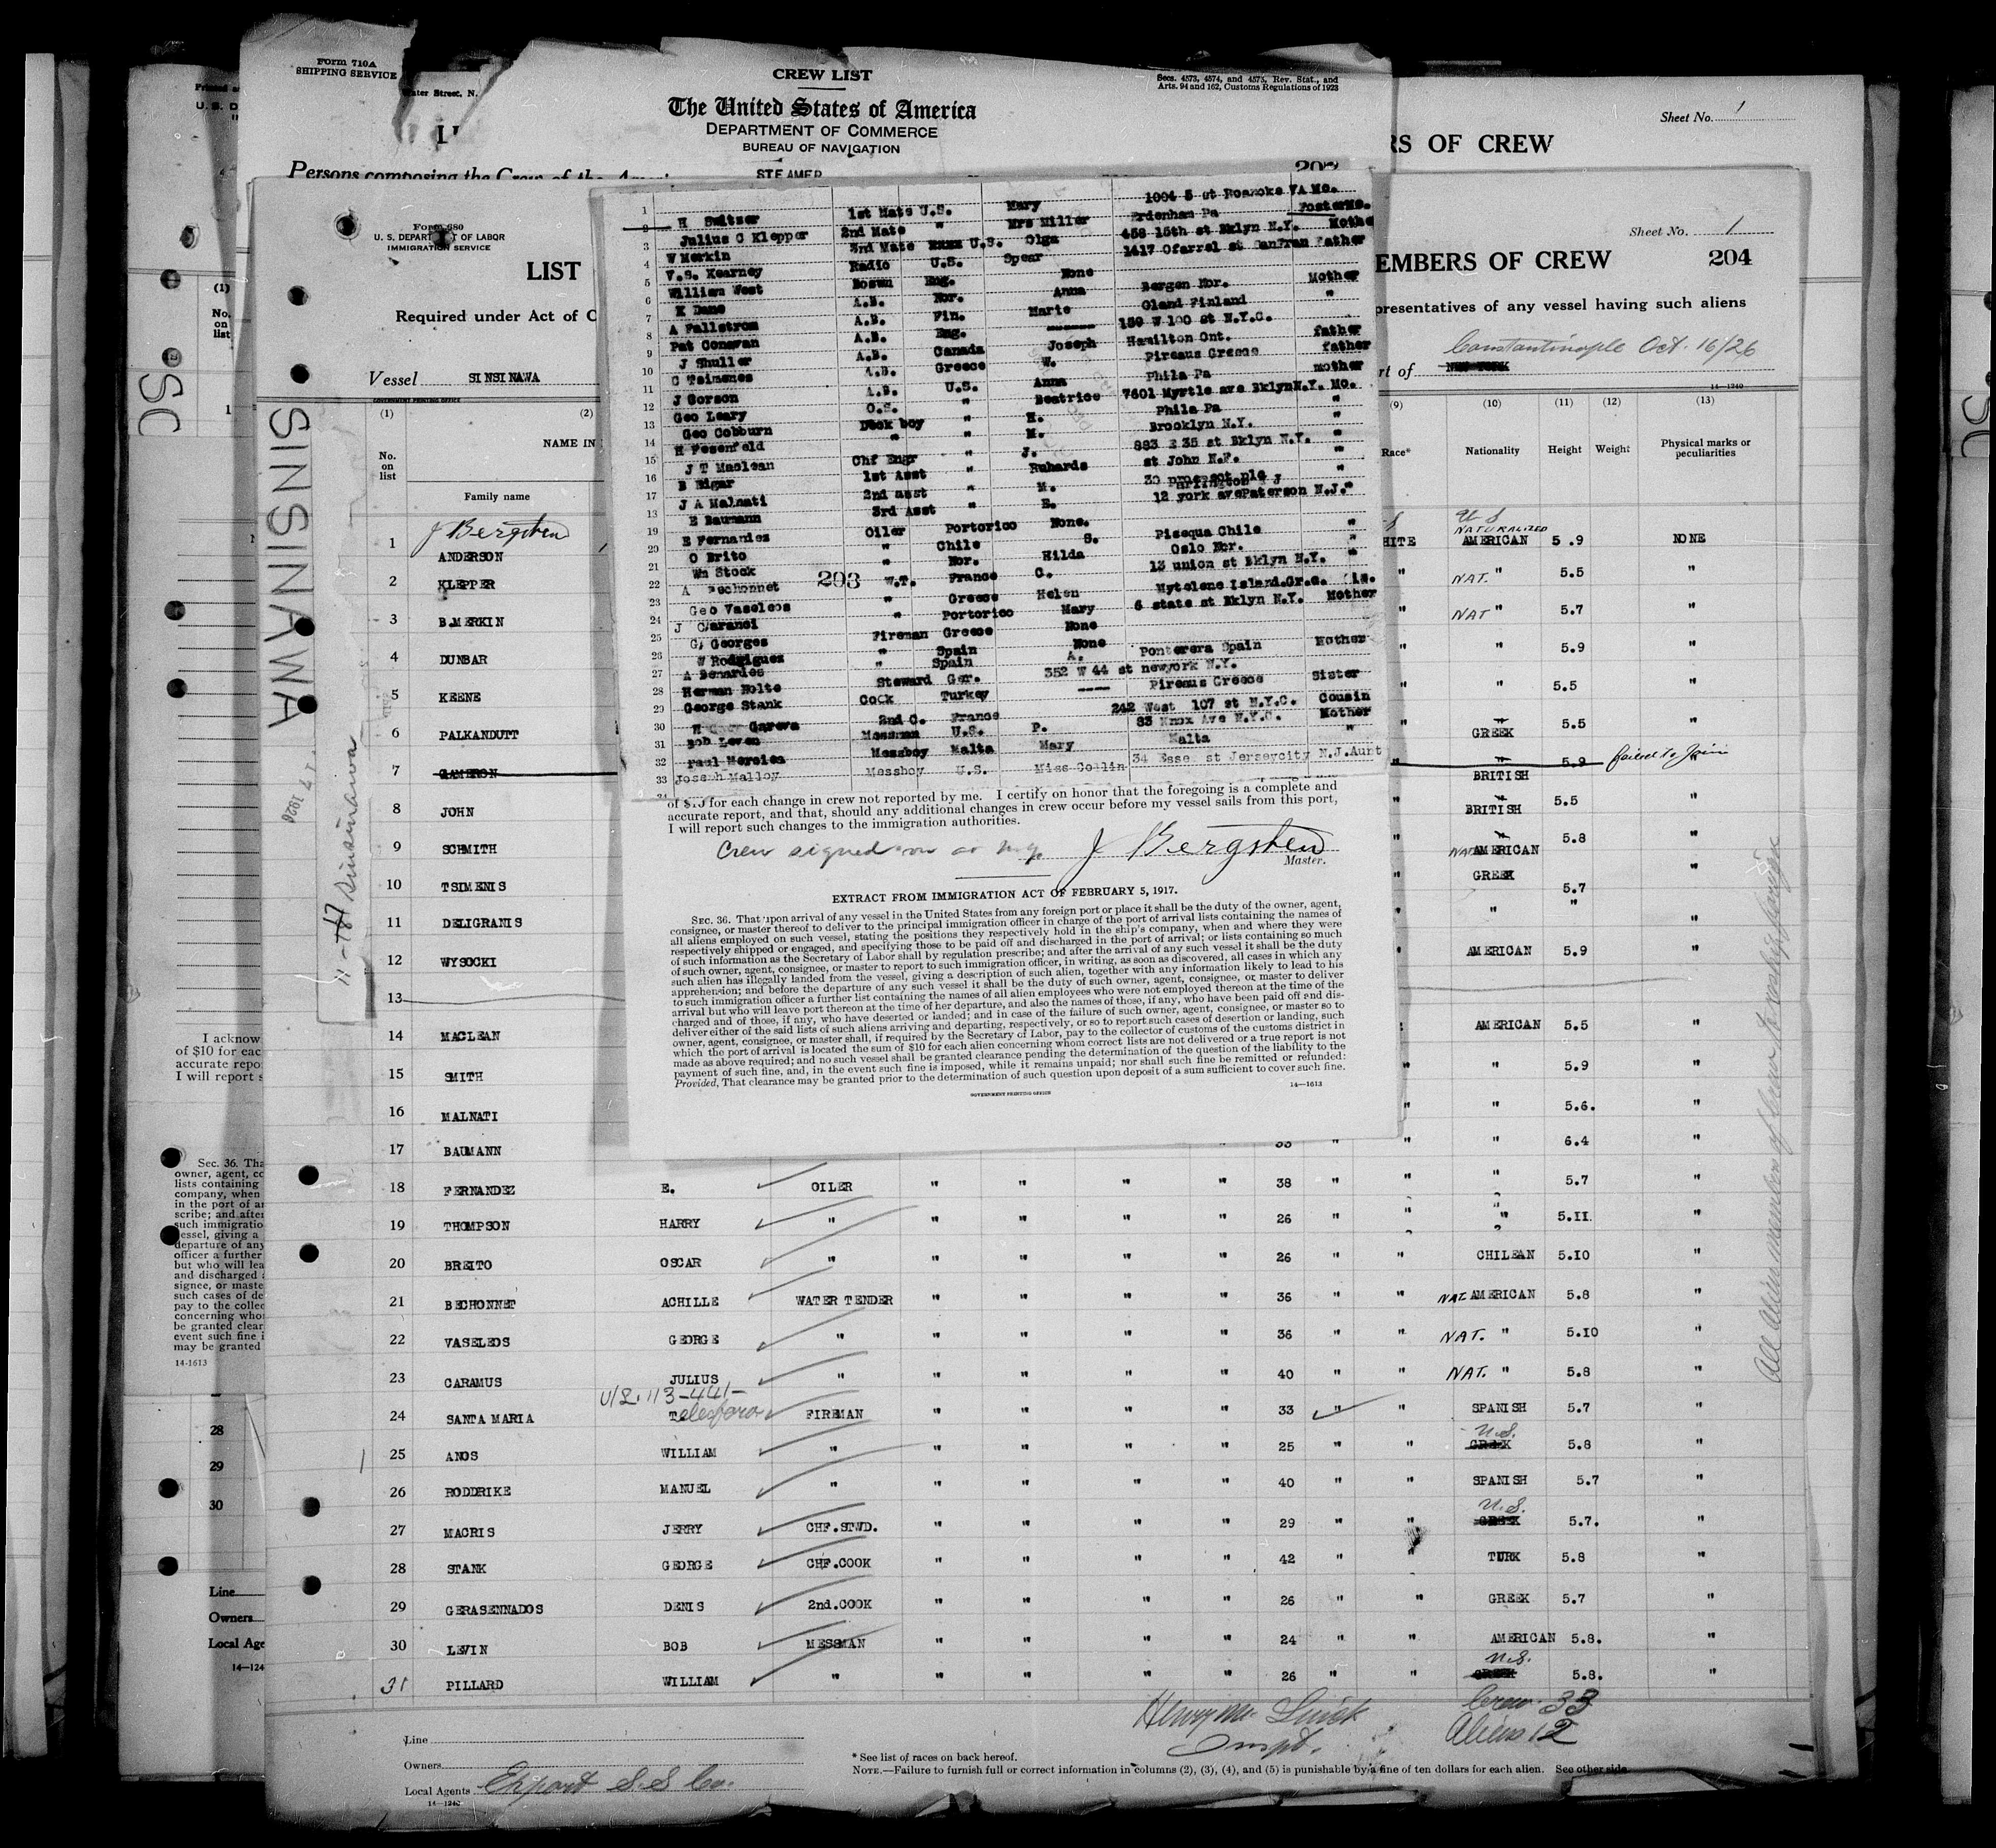 Form 710A
SHIPPING SERVICE
Water Street, N.
CREW LIST
Secs. 4573, 4574, and 4575, Rev. Stat., and
Arts. 94 and 162, Customs Regulations of 1923
The United States of America
DEPARTMENT OF COMMERCE
BUREAU OF NAVIGATION
Sheet No. 1
RS OF CREW
Persons composing the Crew of the
STEAMER
Form 680
U. S. DEPARTMENT OF LABOR
IMMIGRATION SERVICE
Sheet No. 1
LIST
EMBERS OF CREW 204
Required under Act of
presentatives of any vessel having such aliens
Constantinople Oct. 16/26
Vessel SINSINAWA
rt of NEW YORK
14-1240
GOVERNMENT PRINTING OFFICE
(1) (2) (9) (10) (11) (12) (13)
No. on list NAME IN Race* Nationality Height Weight Physical marks or peculiarities
Family name
1 H Switzer 1st Mate U.S. Mary 1004 5 st Roanoke VA Mo.
2 Julius C Klepper 2nd Mate " Mrs Miller Erdenham Pa FosterMo.
3 W Merkin 3rd Mate U.S. Olga 458 15th st Bklyn N.Y. Mothe
4 V.S. Kearney Radio U.S. Spear 1417 Ofarrel st SanFran Father
5 William West Bosun Eng. None
6 K Dane A.B. Nor. Anna Bergen Nor. Mother
7 A Fallstrom A.B. Fin. Marie Gland Finland "
8 Pat Conovan A.B. Eng. 159 W 100 st N.Y.C.
9 J Shuller A.B. Canada Joseph Hamilton Ont. father
10 C Tsimenes A.B. Greece W. Pireaus Greece father
11 J Gorson A.B. U.S. Anna Phila Pa mother
12 Geo Leary O.S. " Beatrice 7601 Myrtle ave BklynN.Y. Mo.
13 Geo Cobburn Deck boy " H. Phila Pa "
14 H Fesenfeld " " M. Brooklyn N.Y. "
15 J T Maclean Chf Engr " J. 883 E 35 st Bklyn N.Y. "
16 B Edgar 1st Asst " Ruhards st John N.F. "
17 J A Malnati 2nd asst " M. "
E Baumann 3rd Asst " E. 12 york avePaterson N.J."
19 E Fernandez Oiler Portorico None.
20 O Brito " Chile S. Pisequa Chile "
21 Wm Stock " Nor. Hilda Oslo Nor. "
22 A Bechonnet 203 W.T. France C. 13 union st Bklyn N.Y. "
23 Geo Vaseleos " Greece Helen Mytelene Island.Gr.
24 J Caramol " Portorico Mary 6 state st Bklyn N.Y. Mother
25 G, Georges Fireman Greece None
26 W Rodriguez " Spain None
27 A Benardes " Spain A. Ponterera Spain Mother
28 Herman Holte Steward Ger. 352 W 44 st newyork N.Y.
29 George Stank Cook Turkey Pireaus Greece Sister
30 Gareva 2nd C. France 242 West 107 st N.Y.C. Cousin
31 Bob Leven Messman U.S. P. 83 Knox Ave N.Y.C. Mother
32 Paul Mercies Messboy Malta Mary Malta "
33 Joseph Malloy Messboy U.S. Miss Collin 34 Essex st Jerseycity N.J.Aunt
of $10 for each change in crew not reported by me. I certify on honor that the foregoing is a complete and
accurate report, and that, should any additional changes in crew occur before my vessel sails from this port,
I will report such changes to the immigration authorities.
Crew signed on at N.Y. J Bergsten
Master.
EXTRACT FROM IMMIGRATION ACT OF FEBRUARY 5, 1917.
SEC. 36. That upon arrival of any vessel in the United States from any foreign port or place it shall be the duty of the owner, agent,
consignee, or master thereof to deliver to the principal immigration officer in charge of the port of arrival lists containing the names of
all aliens employed on such vessel, stating the positions they respectively hold in the ship's company, when and where they were
respectively shipped or engaged, and specifying those to be paid off and discharged in the port of arrival; or lists containing so much
of such information as the Secretary of Labor shall by regulation prescribe; and after the arrival of any such vessel it shall be the duty
of such owner, agent, consignee, or master to report to such immigration officer, in writing, as soon as discovered, all cases in which any
such alien has illegally landed from the vessel, giving a description of such alien, together with any information likely to lead to his
apprehension; and before the departure of any such vessel it shall be the duty of such owner, agent, consignee, or master to deliver
to such immigration officer a further list containing the names of all alien employees who were not employed thereon at the time of the
arrival but who will leave port thereon at the time of her departure, and also the names of those, if any, who have been paid off and dis-
charged and of those, if any, who have deserted or landed; and in case of the failure of such owner, agent, consignee, or master so to
deliver either of the said lists of such aliens arriving and departing, respectively, or so to report such cases of desertion or landing, such
owner, agent, consignee, or master shall, if required by the Secretary of Labor, pay to the collector of customs of the customs district in
which the port of arrival is located the sum of $10 for each alien concerning whom correct lists are not delivered or a true report is not
made as above required; and no such vessel shall be granted clearance pending the determination of the question of the liability to the
payment of such fine, and, in the event such fine is imposed, while it remains unpaid; nor shall such fine be remitted or refunded:
Provided, That clearance may be granted prior to the determination of such question upon deposit of a sum sufficient to cover such fine.
14-1613
GOVERNMENT PRINTING OFFICE
J Bergsten U S
1 ANDERSON HITE NATURALIZED AMERICAN 5.9 NONE
2 KLEPPER " NAT. " 5.5 "
3 B.MERKIN " NAT " 5.7 "
4 DUNBAR " " 5.9 "
5 KEENE " " 5.5 "
6 PALKANDUTT " GREEK 5.5 "
7 CAMERON " BRITISH 5.9 failed to join "
8 JOHN " BRITISH 5.5 "
9 SCHMITH " NAT AMERICAN 5.8 "
10 TSIMENIS " GREEK 5.7 "
11 DELIGRANIS " " " "
12 WYSOCKI " AMERICAN 5.9 "
13
14 MACLEAN " AMERICAN 5.5 "
15 SMITH " " 5.9 "
16 MALNATI " " 5.6. "
17 BAUMANN " " " 6.4 "
18 FERNANDEZ E. OILER " " " " 38 " " " 5.7 "
19 THOMPSON HARRY " " " " " 26 " " " 5.11. "
20 BREITO OSCAR " " " " " 26 " " CHILEAN 5.10 "
21 BECHONNET ACHILLE WATER TENDER " " " " 36 " " NAT AMERICAN 5.8 "
22 VASELEOS GEORGE " " " " " 36 " " NAT. " 5.10 "
23 CARAMUS JULIUS " " " " " 40 " " NAT. " 5.8 "
U/L. 113-441-
24 SANTA MARIA Telesforo FIREMAN " " " " 33 " " SPANISH 5.7 "
25 ANOS WILLIAM " " " " " 25 " " U.S. GREEK 5.8 "
26 RODDRIKE MANUEL " " " " " 40 " " SPANISH 5.7 "
27 MACRIS JERRY CHF.STWD. " " " " 29 " " U.S. GREEK 5.7. "
28 STANK GEORGE CHF.COOK " " " " 42 " " TURK 5.8 "
29 GERASENNADOS DENIS 2nd.COOK " " " " 26 " " GREEK 5.7 "
30 LEVIN BOB MESSMAN " " " " 24 " " AMERICAN 5.8. "
31 PILLARD WILLIAM " " " " " 26 " " U.S. GREEK 5.8. "
Crew 33
Aliens 12
Line
Owners
Local Agents Export S.S Co.
14-1240
* See list of races on back hereof.
NOTE.—Failure to furnish full or correct information in columns (2), (3), (4), and (5) is punishable by a fine of ten dollars for each alien. See other side.
SINSINAWA
11-17 Sinsinawa
All alien members of crew
SC
(1)
No. on list
1
I acknow
of $10 for eac
accurate repo
I will report s
Sec. 36. Tha
owner, agent, co
lists containing
company, when
in the port of ar
scribe; and after
such immigratio
vessel, giving a
departure of any
officer a further
but who will lea
and discharged
signee, or maste
such cases of de
pay to the collec
concerning who
be granted clear
event such fine i
may be granted
14-1613
28
29
30
Line
Owners
Local Age
14-124